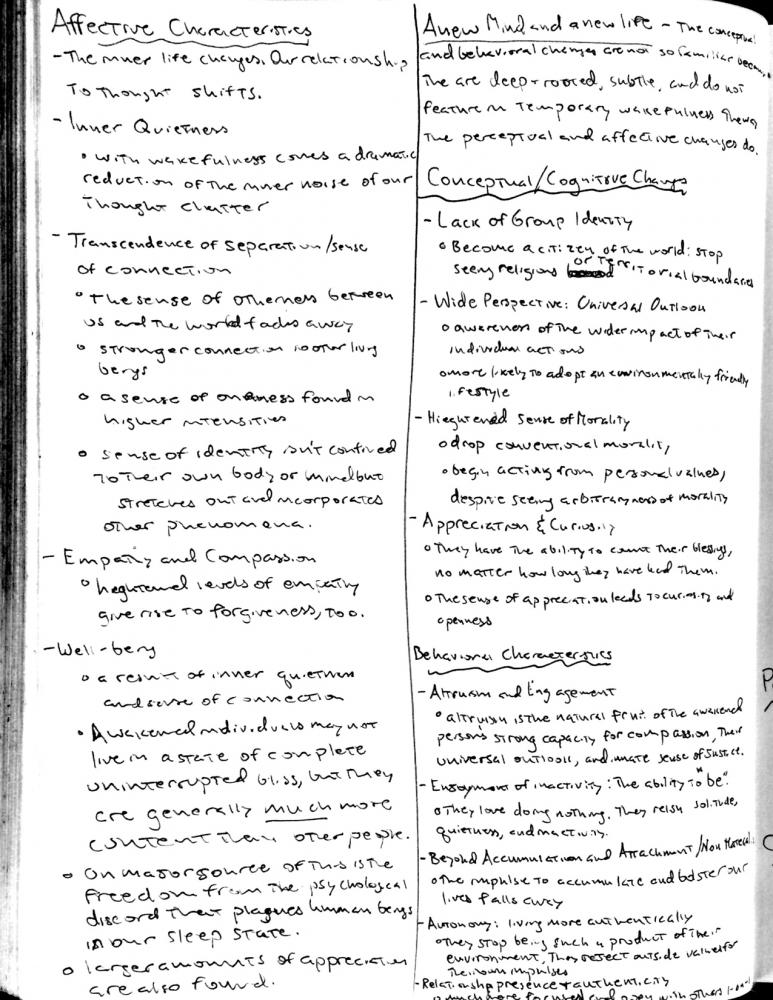 Affective Characteristics
- The inner life changes. Our relationship
To Thought shifts.
- Inner Quietness
• with wakefulness comes a dramatic
reduction of the inner noise of our
Thought chatter
- Transcendence of separation/sense
of connection
• the sense of otherness between
us and the world fades away
• stronger connection to other living
beings
• a sense of oneness found in
higher intensities
• sense of identity isn't confined
To their own body or mind but
stretches out and incorporates
other phenomena.
- Empathy and Compassion
• heightened levels of empathy
give rise to forgiveness, too.
- Well-being
• a result of inner quietness
and sense of connection
• Awakened individuals may not
live in a state of complete
uninterrupted bliss, but they
are generally much more
content than other people.
• On major source of this is the
freedom from the psychological
discord that plagues human beings
in our sleep state.
• larger amounts of appreciation
are also found.
A new Mind and a new life - The conceptual
and behavioral changes are not so familiar
The are deep-rooted, subtle, and do not
feature in temporary wakefulness
The perceptual and affective changes do.
Conceptual/Cognitive Changes
- Lack of Group Identity
• Become a citizen of the world: stop
seeing religious or territorial boundaries
- Wide Perspective: Universal Outlook
• awareness of the wider impact of their
individual actions
• more likely to adopt an environmentally friendly
lifestyle
- Hieghtened Sense of Morality
• drop conventional morality,
• begin acting from personal values,
despite seeing arbitraryness of morality
- Appreciation & Curiosity
• They have the ability to count their blessings,
no matter how long they have had them.
• The sense of appreciation leads to curiosity and
openness
Behavioral Characteristics
- Altruism and Engagement
• altruism is the natural fruit of the awakened
person's strong capacity for compassion, their
universal outlook, and innate sense of justice.
- Enjoyment of inactivity: The ability to "be".
• They love doing nothing. They relish solitude,
quietness, and inactivity.
- Beyond Accumulation and Attachment/Non Material
• the impulse to accumulate and bolster our
lives falls away
- Autonomy: living more authentically
• They stop being such a product of their
environment, They reject outside values for
their own impulses
- Relationship presence + authenticity
much more focused and open with others